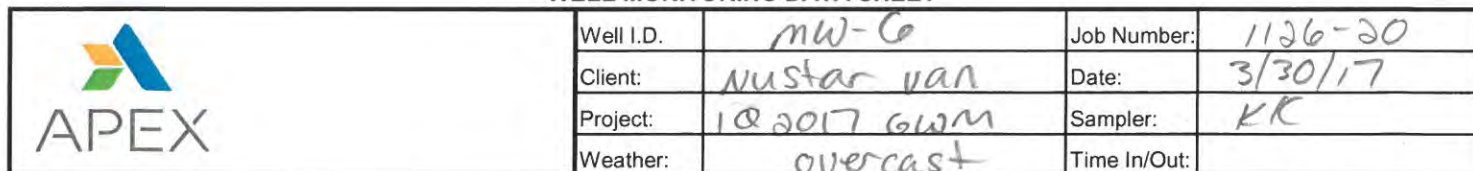 WELL MONITORING DATA SHEET
APEX
Well I.D. MW-6 Job Number: 1126-20
Client: Nustar Van Date: 3/30/17
Project: 1Q 2017 GWM Sampler: KK
Weather: overcast Time In/Out: